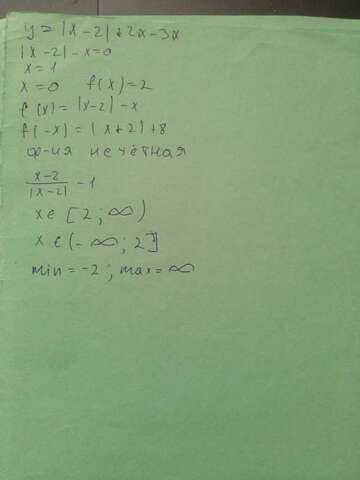 y = |x-2|+2x-3x
|x-2|-x=0
x=1
x=0 f(x)=2
f(x)=|x-2|-x
f(-x)=|x+2|+8
ф-ия не чётная
x-2/|x-2| -1
x∈[2;∞)
x∈(-∞;2]
min=-2; max=∞